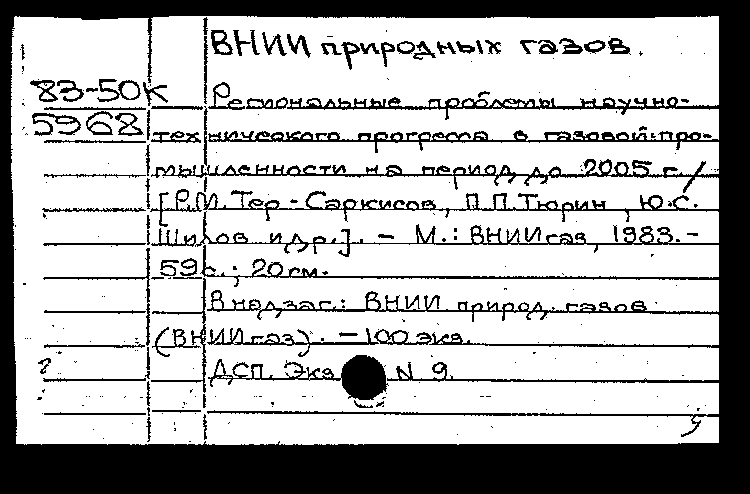 ВНИИ природных газов.
83-50К Региональные проблемы научно-
5968 технического прогресса в газовой про-
мышленности на период до 2005 г. /
[Р.М. Тер-Саркисов, П.П. Тюрин, Ю.С.
Шилов и др.]. - М.: ВНИИгаз, 1983. -
59 с.; 20 см.
В надзаг.: ВНИИ природ. газов
(ВНИИгаз). - 100 экз.
ДСП. Экз N 9.